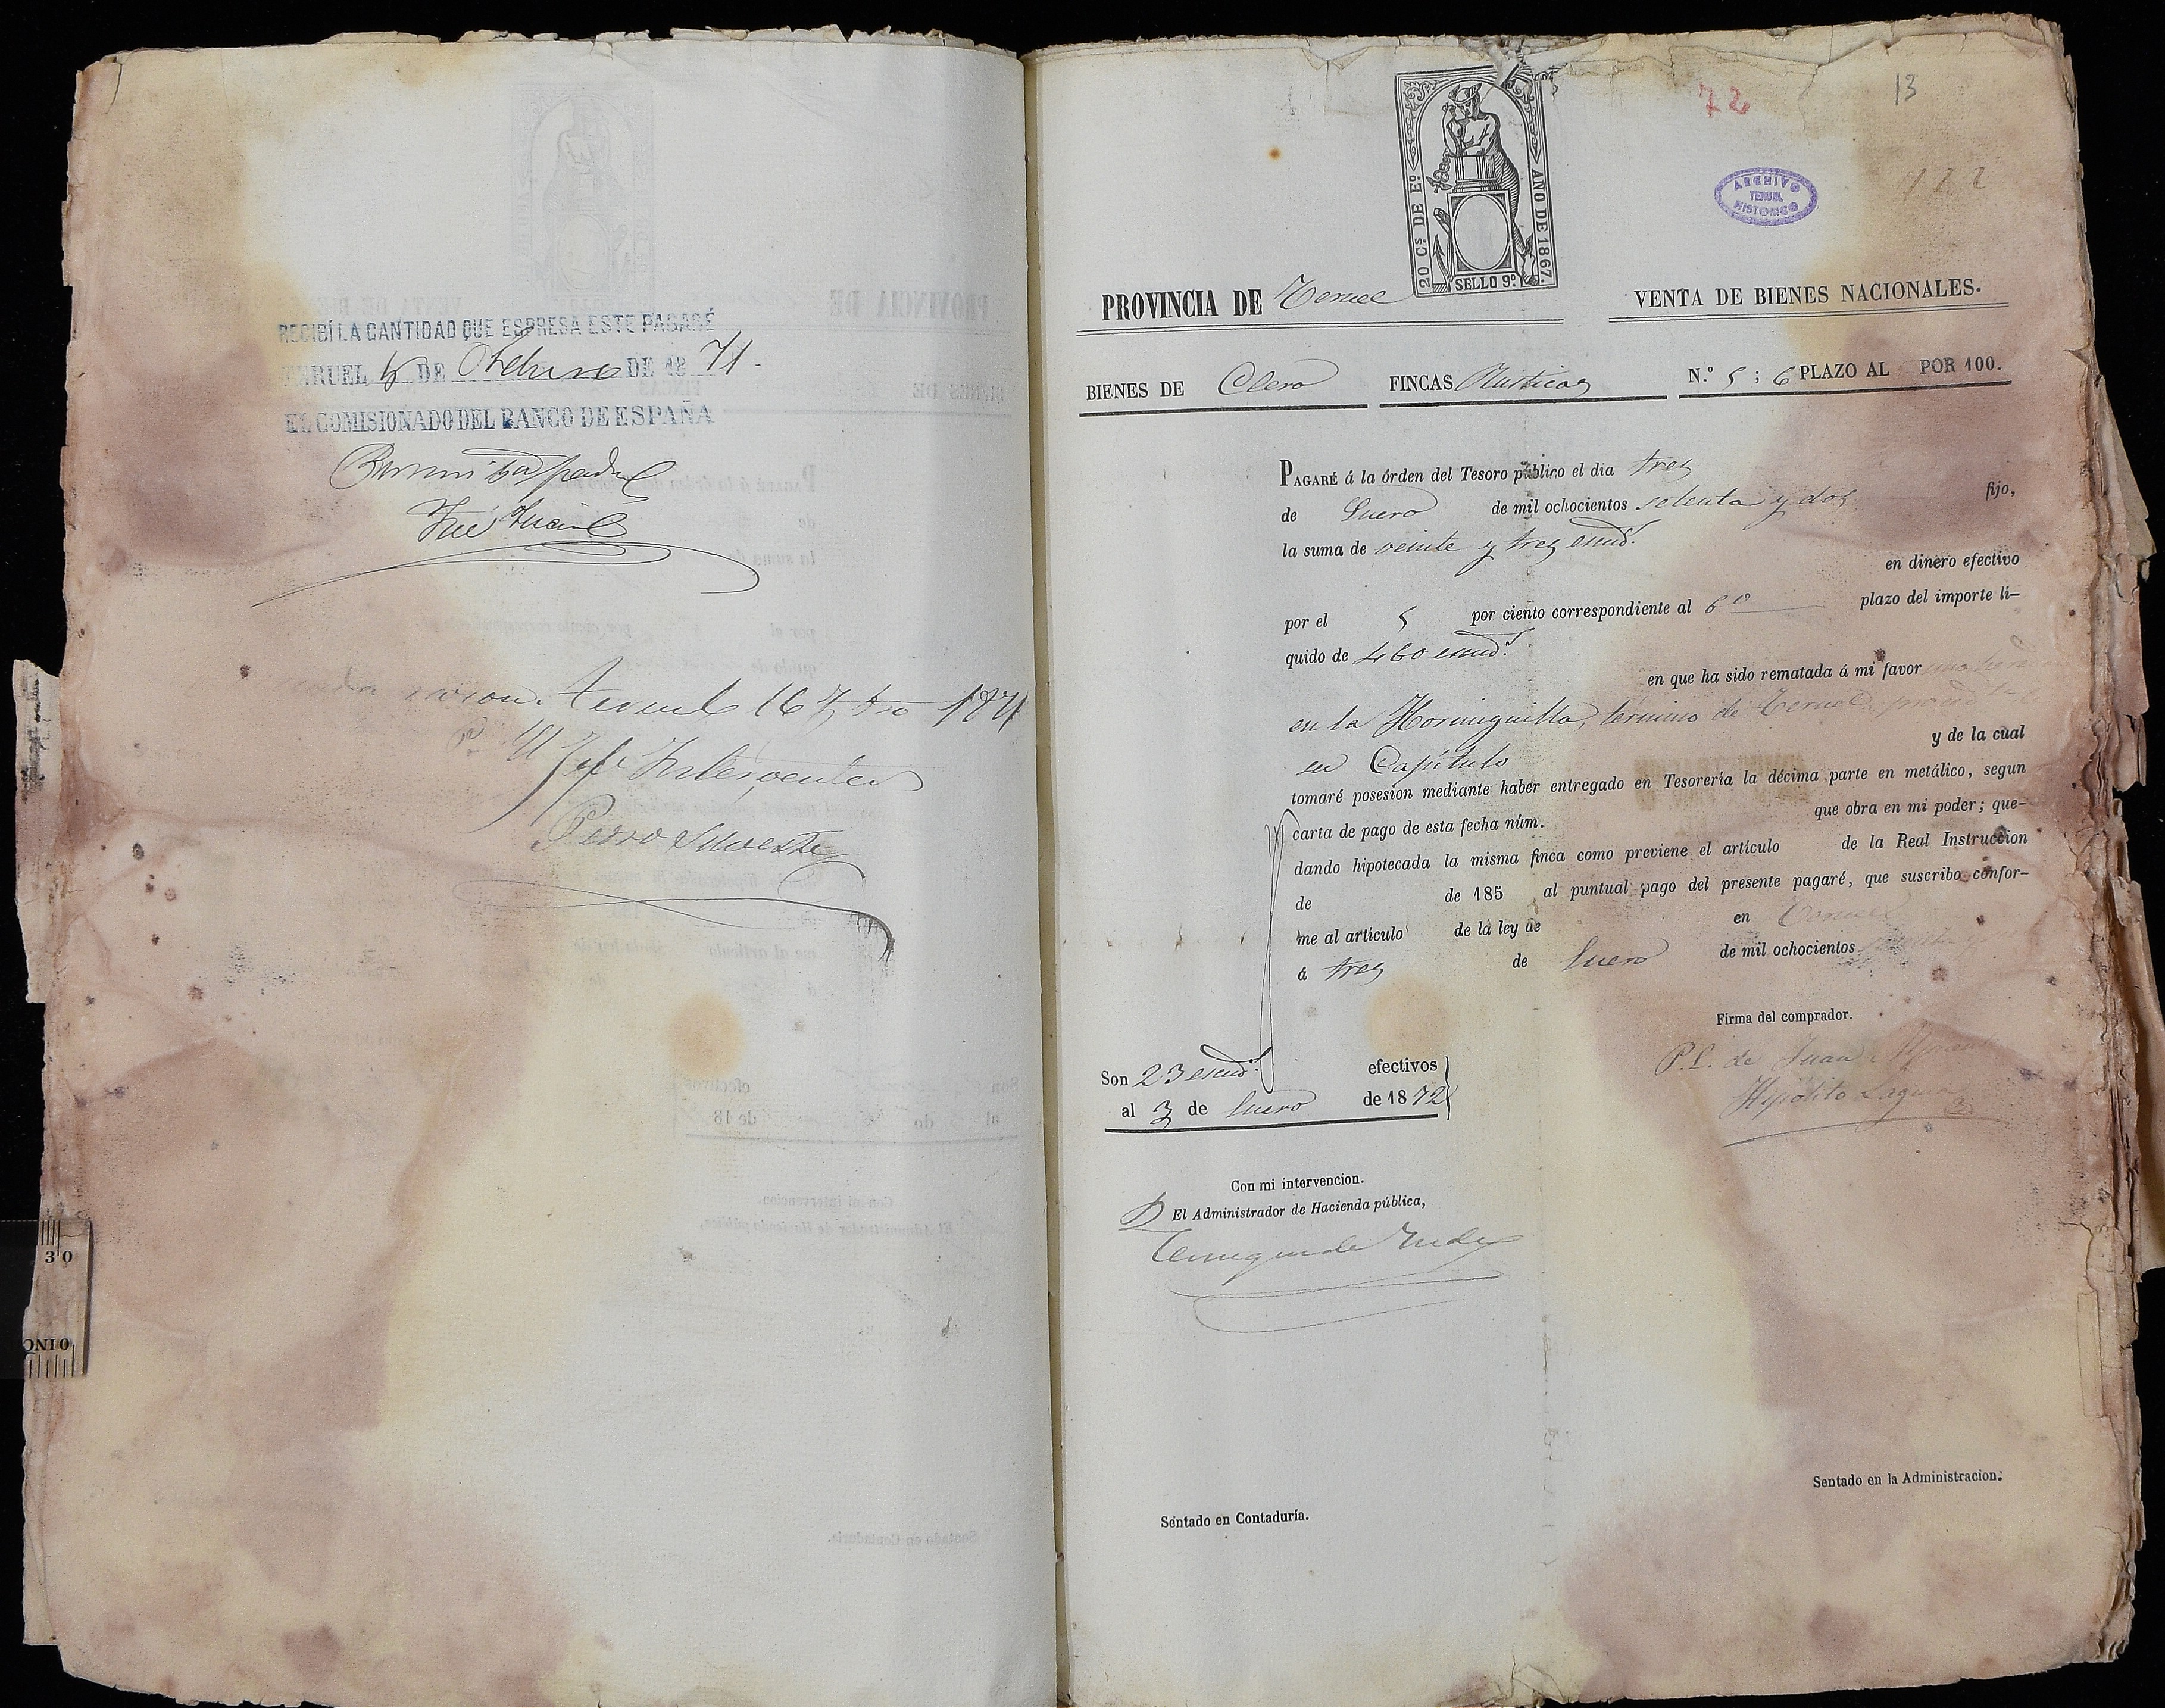 RECIBÍ LA CANTIDAD QUE ESPRESA ESTE PAGARÉ
TERUEL DE DE 18 71.
EL COMISIONADO DEL BANCO DE ESPAÑA
Teruel 16
Interventor
Pedro
72
13
122
20 Cs DE Eº
AÑO DE 1867.
SELLO 9º
ARCHIVO
TERUEL
HISTORICO
PROVINCIA DE Teruel
VENTA DE BIENES NACIONALES.
BIENES DE Clero FINCAS Rusticas N.º 5; 6 PLAZO AL POR 100.
PAGARÉ á la órden del Tesoro público el dia tres
de Enero de mil ochocientos setenta y dos fijo,
la suma de veinte y tres escud.s
en dinero efectivo
por el 5 por ciento correspondiente al 6º plazo del importe lí-
quido de 460 escud.s
en que ha sido rematada á mi favor una
en la Hormiguilla, término de Teruel,
su Capítulo y de la cual
tomaré posesion mediante haber entregado en Tesorería la décima parte en metálico, segun
carta de pago de esta fecha núm. que obra en mi poder; que-
dando hipotecada la misma finca como previene el artículo de la Real Instruccion
de de 185 al puntual pago del presente pagaré, que suscribo confor-
me al artículo de la ley de en Teruel
á tres de Enero de mil ochocientos
Firma del comprador.
P. E. de Juan
Hipólito Laguna
Son 23 escud.s efectivos
al 3 de Enero de 1872
Con mi intervencion.
El Administrador de Hacienda pública,
Sentado en la Administracion.
Sentado en Contaduría.
30